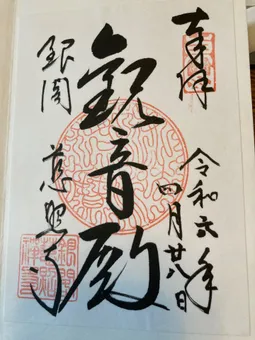 奉拝
令和六年
四月廿八日
観音殿
銀閣
慈照寺